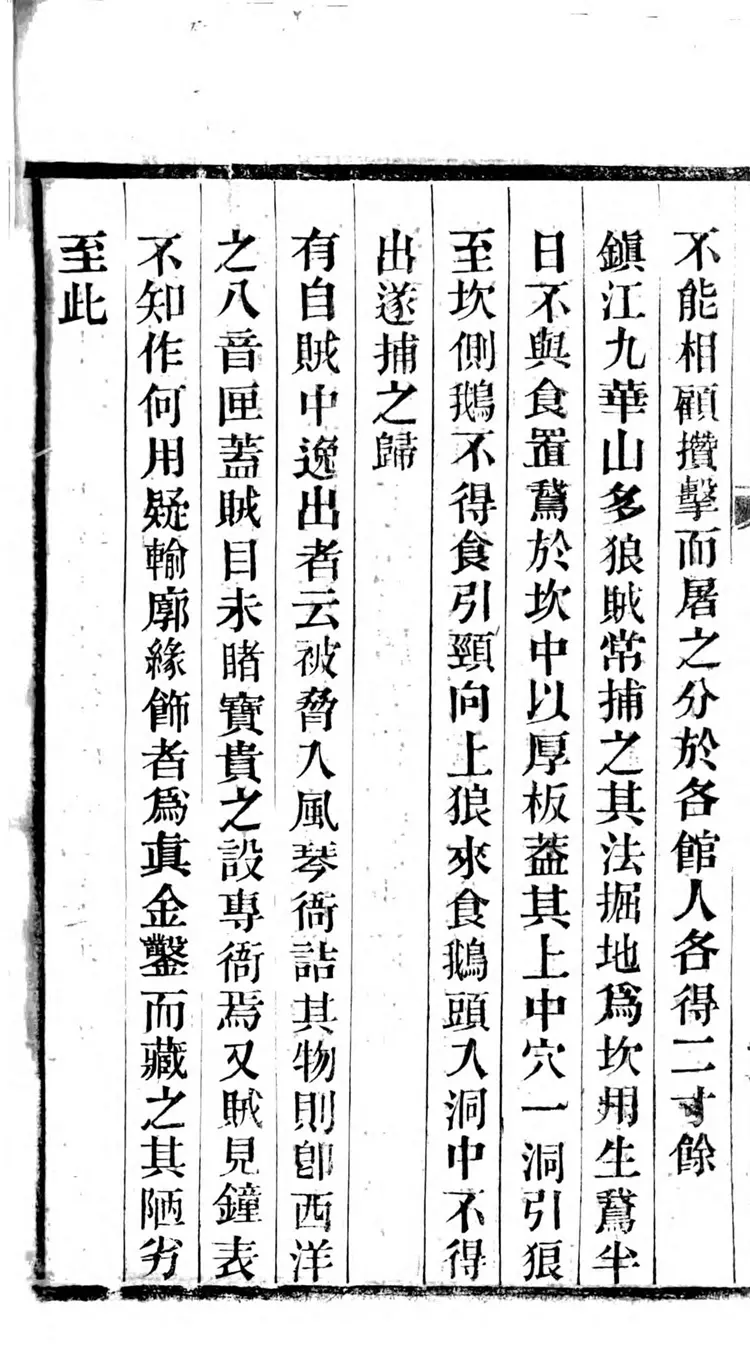 不能相顧攢擊而屠之分於各館人各得二寸餘
鎭江九華山多狼賊常捕之其法掘地爲坎用生鵞半
日不與食置鵞於坎中以厚板葢其上中穴一洞引狼
至坎側鵝不得食引頸向上狼來食鵝頭入洞中不得
出遂捕之歸
有自賊中逸出者云被脅入風琴衙詰其物則卽西洋
之八音匣蓋賊目未睹寶貴之設專衙焉又賊見鐘表
不知作何用疑輪廓緣飾者爲眞金鑿而藏之其陋劣
至此